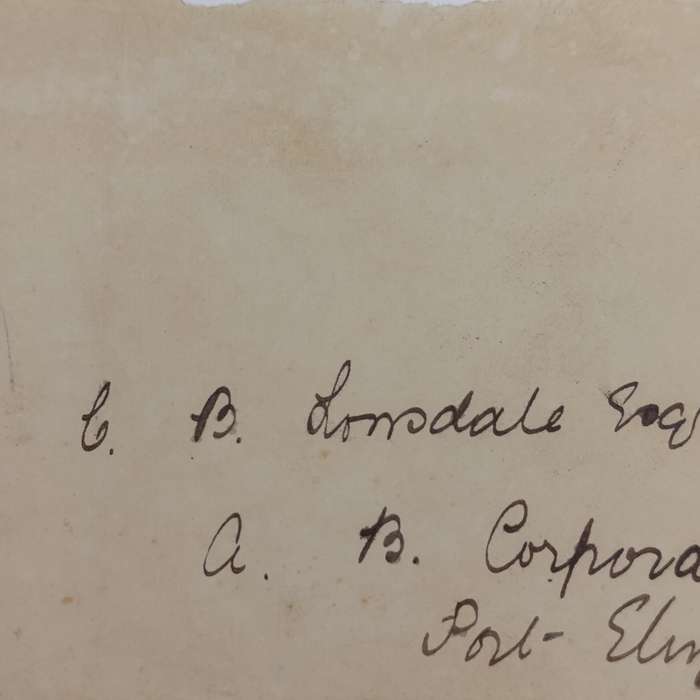 C. B. Lonsdale Esq
A. B. Corpora
Port Eliz